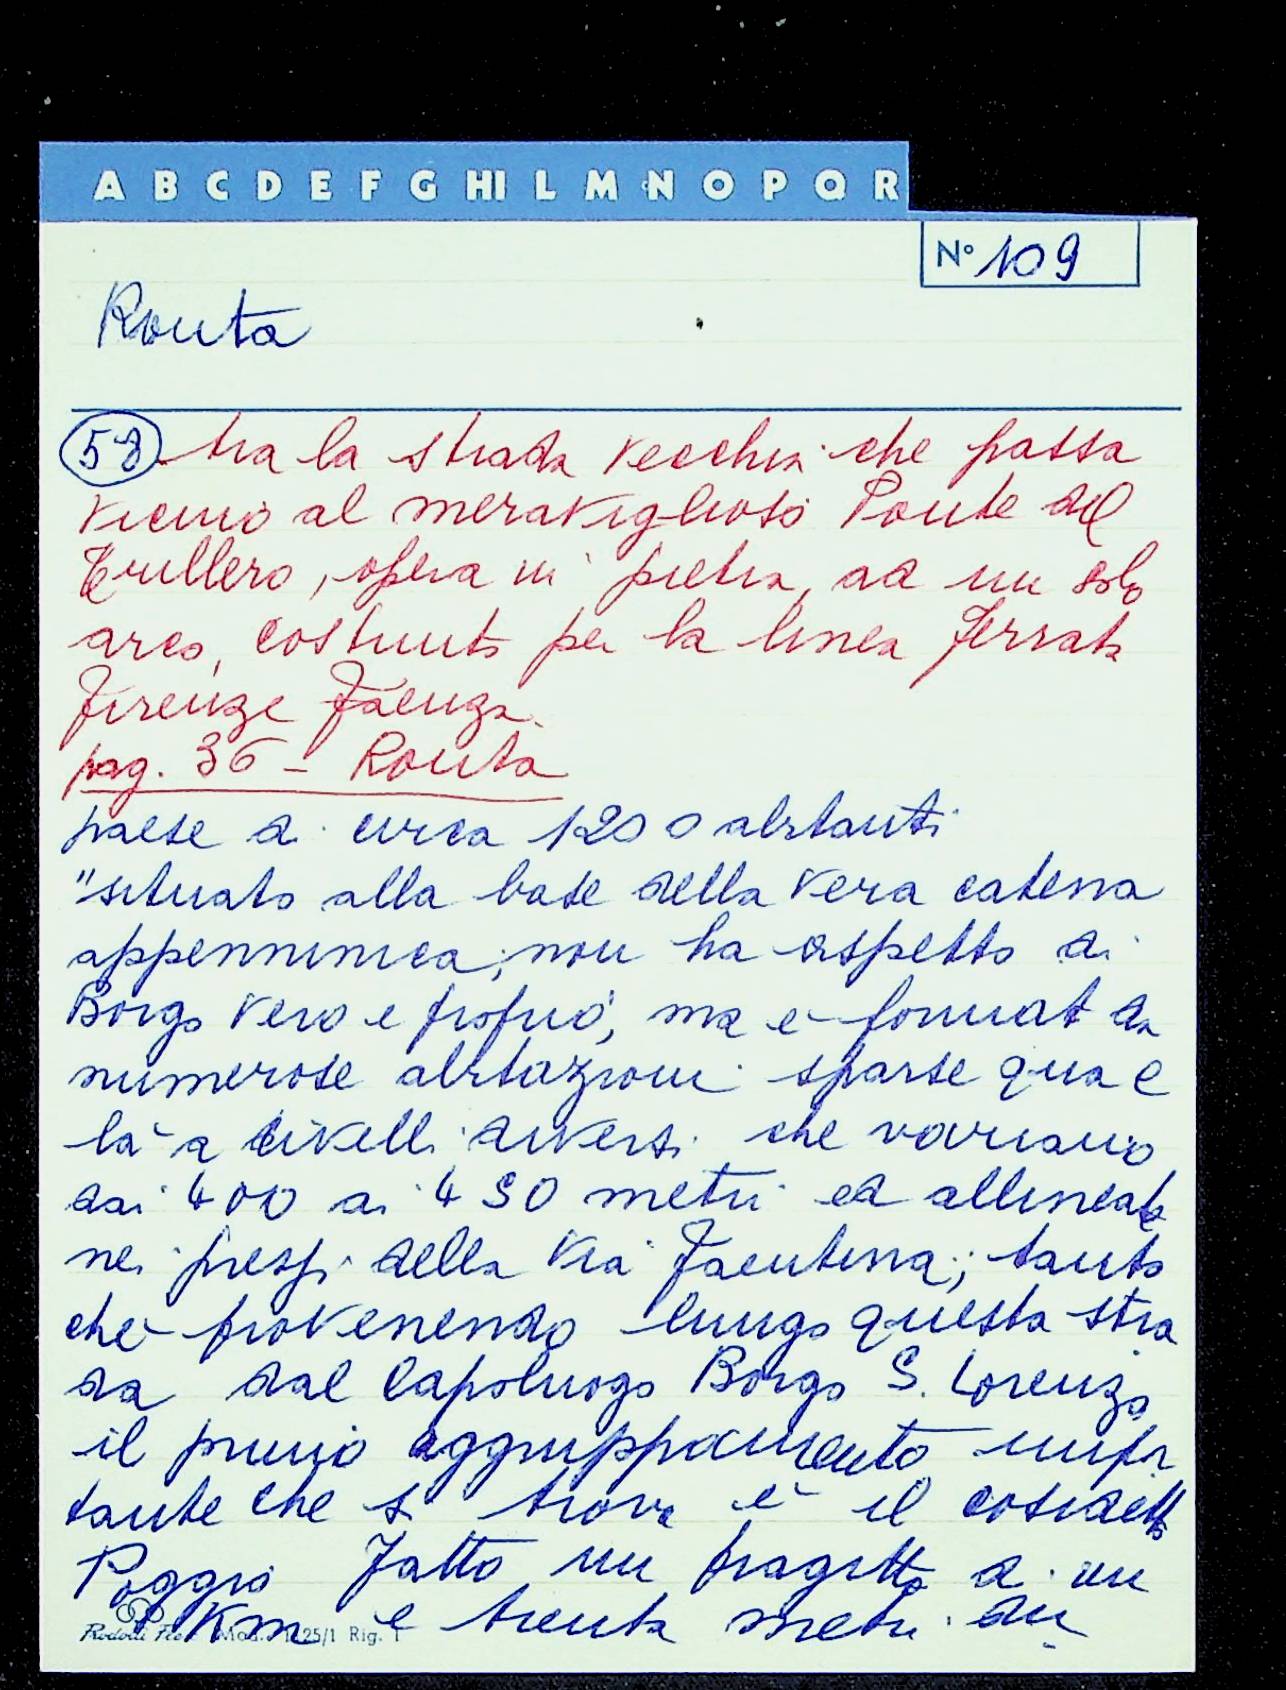 A B C D E F G HI L M N O P Q R
N° 109
Ronta
58 tra la strada vecchia che passa
vicino al meraviglioso Ponte del
Grullero, opera in pietra, ad un solo
arco, costruito per la linea ferrata
Firenze Faenza.
pag. 36 - Ronta
paese di circa 1200 abitanti
"situato alla base della vera catena
appenninica, non ha aspetto di
Borgo vero e proprio, ma è formato da
numerose abitazioni sparse qua e
là a livelli diversi che variano
dai 400 ai 450 metri ed allineate
nei pressi della via Faentina; tanto
che provenendo lungo questa stra
da dal Capoluogo Borgo S. Lorenzo
il primo aggruppamento impor
tante che si trova è il cosidetto
Poggio Fatto un tragitto di un
Km e trenta metri du
Mod. 1225/1 Rig. 1